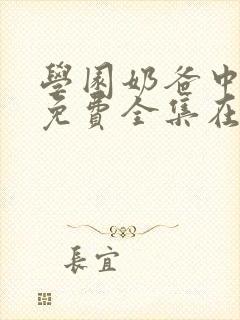 學園奶爸中
免費全集在
長宜